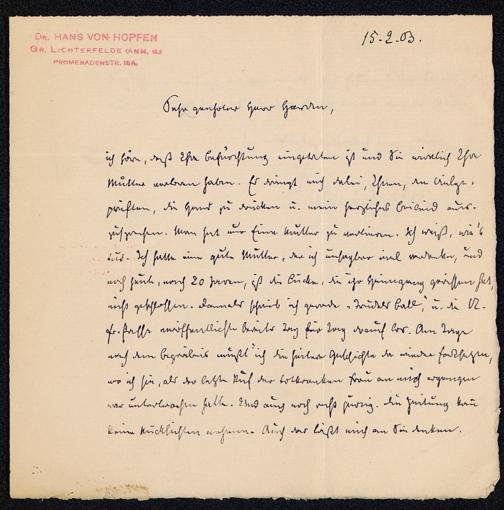 DR. HANS VON HOPFEN
GR. LICHTERFELDE (ANH. B.)
PROMENADENSTR. 18A.
15.2.03.
Sehr geehrter Herr Harden,
ich höre, daß Ihre Befürchtung eingetreten ist und Sie wirklich Ihre
Mutter verloren haben. Es drängt mich dabei, Ihnen, dem Vielge-
prüften, die Hand zu drücken u. mein herzliches Beileid aus-
zusprechen. Man hat nur Eine Mutter zu verlieren. Ich weiß, wie's
tut. Ich hatte eine gute Mutter, der ich unsagbar viel verdanke, und
noch heute, nach 20 Jaren, ist die Lücke, die ihr Heimgang gerissen hat,
nicht geschlossen. Damals schrieb ich gerade u. die
veröffentlichte bereits Tag für Tag darauf los. Am Tage
nach dem Begräbnis mußt' ich die heitere Geschichte da wieder fortsetzen,
wo ich sie, als der letzte Ruf der todkranken Frau an mich ergangen
war unterbrochen hatte. Und auch noch recht Die Zeitung kann
keine Rücksichten nehmen. Auch das läßt mich an Sie denken.